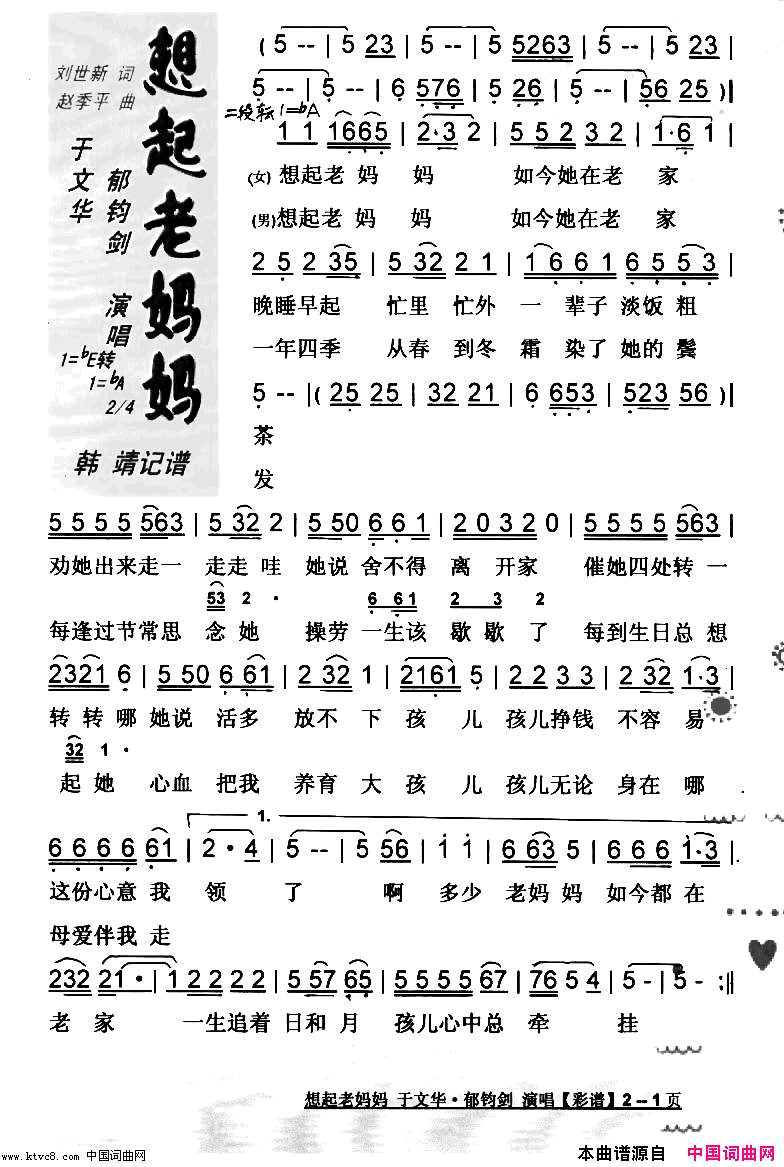 想起老妈妈
刘世新 词
赵季平 曲
于文华
郁钧剑
演唱
1=bE转
1=bA
2/4
韩 靖记谱
( 5 -- | 5 23 | 5 -- | 5263 | 5 -- | 523 |
5 -- | 5 -- | 6 576 | 5 -- | 5 -- | 56 25 )||
二段转1=bA
1 1 1665 | 2·3 2 | 5 5 5 2 3 2 | 1·6 1 |
(女) 想起老 妈 妈 如今她在老 家
(男) 想起老 妈 妈 如今她在老 家
2 5 2 35 | 5 32 2 1 | 1 6 6 1 6 5 5 3 |
晚睡早起 忙里 忙外 一 辈子 淡饭 粗
一年四季 从春 到冬 霜 染了 她的 鬓
5 -- |( 25 25 | 32 21 | 6 653 | 523 56 )||
茶
发
5 5 5 5 563 | 5 32 2 | 5 50 6 6 1 | 2 0 3 2 0 | 5 5 5 5 563 |
劝她出来走一 走走 哇 她说 舍不得 离 开家 催她四处转 一
53 2 · 6 61 2 3 2
每逢过节常思 念 她 操劳 一生该 歇歇 了 每到生日总 想
2321 6 | 5 50 6 61 | 2 32 1 | 2161 5 | 2 2 3 3 | 2 32 1·3 |
转 转 哪 她说 活多 放不 下 孩 儿 孩儿挣钱 不容 易
32 1 ·
起 她 心血 把我 养育 大 孩 儿 孩儿无论 身在 哪
1.
6 6 6 6 61 | 2 · 4 | 5 -- | 5 56 | 1 1 | 6 63 5 | 6 6 6 1·3 |
这份心意 我 领 了 啊 多少 老妈 妈 如今都 在
母爱伴我 走
232 21 · | 1 2 2 2 2 2 | 5 57 65 | 5 5 5 5 67 | 76 5 4 | 5 - | 5 - :||
老 家 一生追着 日和 月 孩儿心中总 牵 挂
想起老妈妈 于文华·郁钧剑 演唱【彩谱】2--1页
www.ktvc8.com 中国词曲网
本曲谱源自 中国词曲网